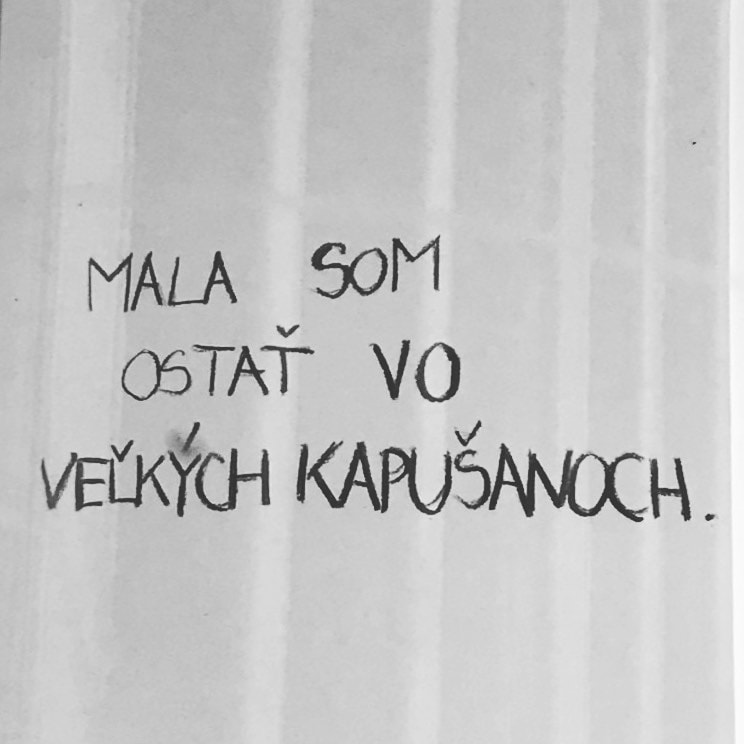 MALA SOM
OSTAŤ VO
VEĽKÝCH KAPUŠANOCH.